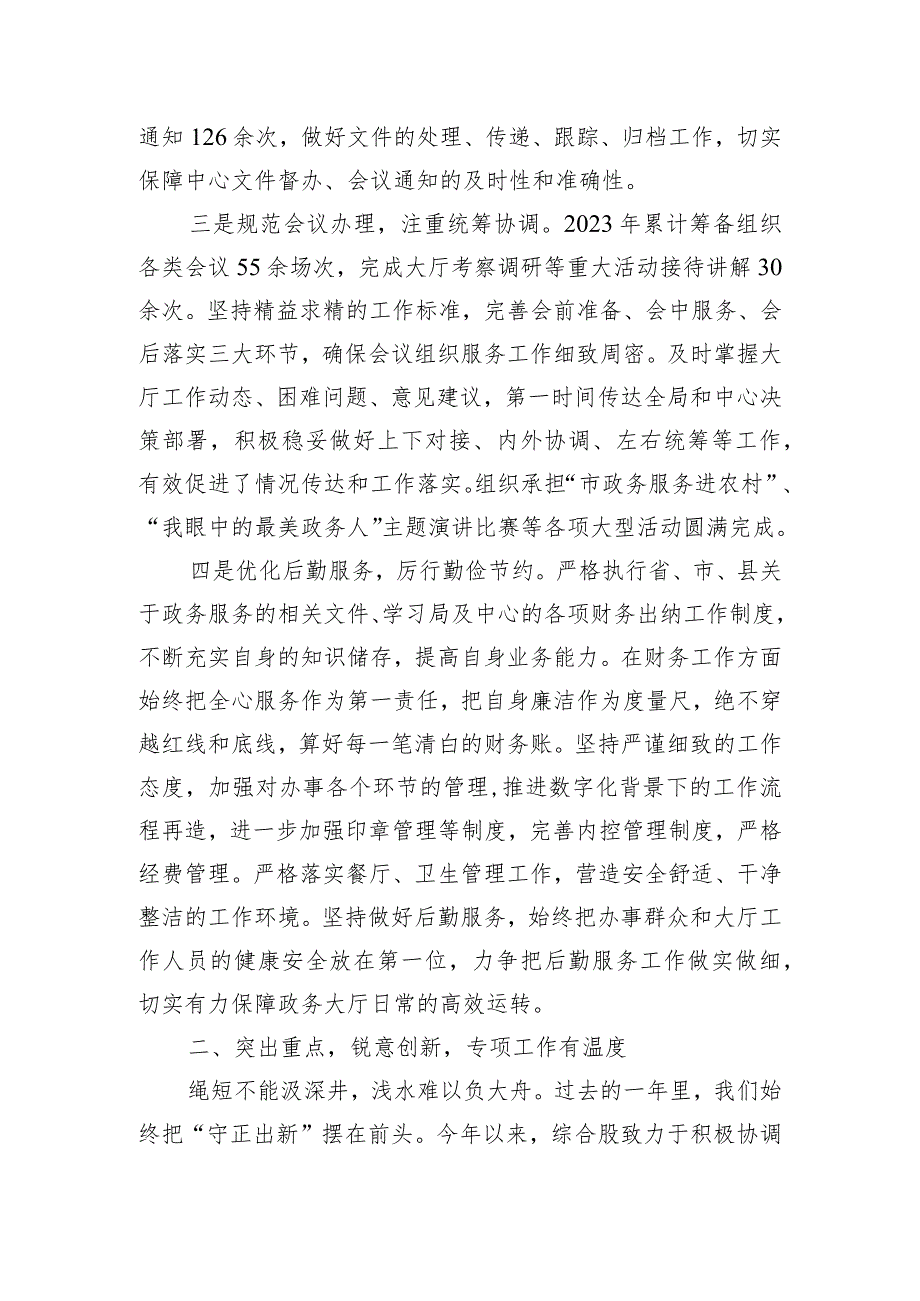 通知 126 余次，做好文件的处理、传递、跟踪、归档工作，切实
保障中心文件督办、会议通知的及时性和准确性。
三是规范会议办理，注重统筹协调。2023 年累计筹备组织
各类会议 55 余场次，完成大厅考察调研等重大活动接待讲解 30
余次。坚持精益求精的工作标准，完善会前准备、会中服务、会
后落实三大环节，确保会议组织服务工作细致周密。及时掌握大
厅工作动态、困难问题、意见建议，第一时间传达全局和中心决
策部署，积极稳妥做好上下对接、内外协调、左右统筹等工作，
有效促进了情况传达和工作落实。组织承担“市政务服务进农村”、
“我眼中的最美政务人”主题演讲比赛等各项大型活动圆满完成。
四是优化后勤服务，厉行勤俭节约。严格执行省、市、县关
于政务服务的相关文件、学习局及中心的各项财务出纳工作制度，
不断充实自身的知识储存，提高自身业务能力。在财务工作方面
始终把全心服务作为第一责任，把自身廉洁作为度量尺，绝不穿
越红线和底线，算好每一笔清白的财务账。坚持严谨细致的工作
态度，加强对办事各个环节的管理,推进数字化背景下的工作流
程再造，进一步加强印章管理等制度，完善内控管理制度，严格
经费管理。严格落实餐厅、卫生管理工作，营造安全舒适、干净
整洁的工作环境。坚持做好后勤服务，始终把办事群众和大厅工
作人员的健康安全放在第一位，力争把后勤服务工作做实做细，
切实有力保障政务大厅日常的高效运转。
二、突出重点，锐意创新，专项工作有温度
绳短不能汲深井，浅水难以负大舟。过去的一年里，我们始
终把“守正出新”摆在前头。今年以来，综合股致力于积极协调